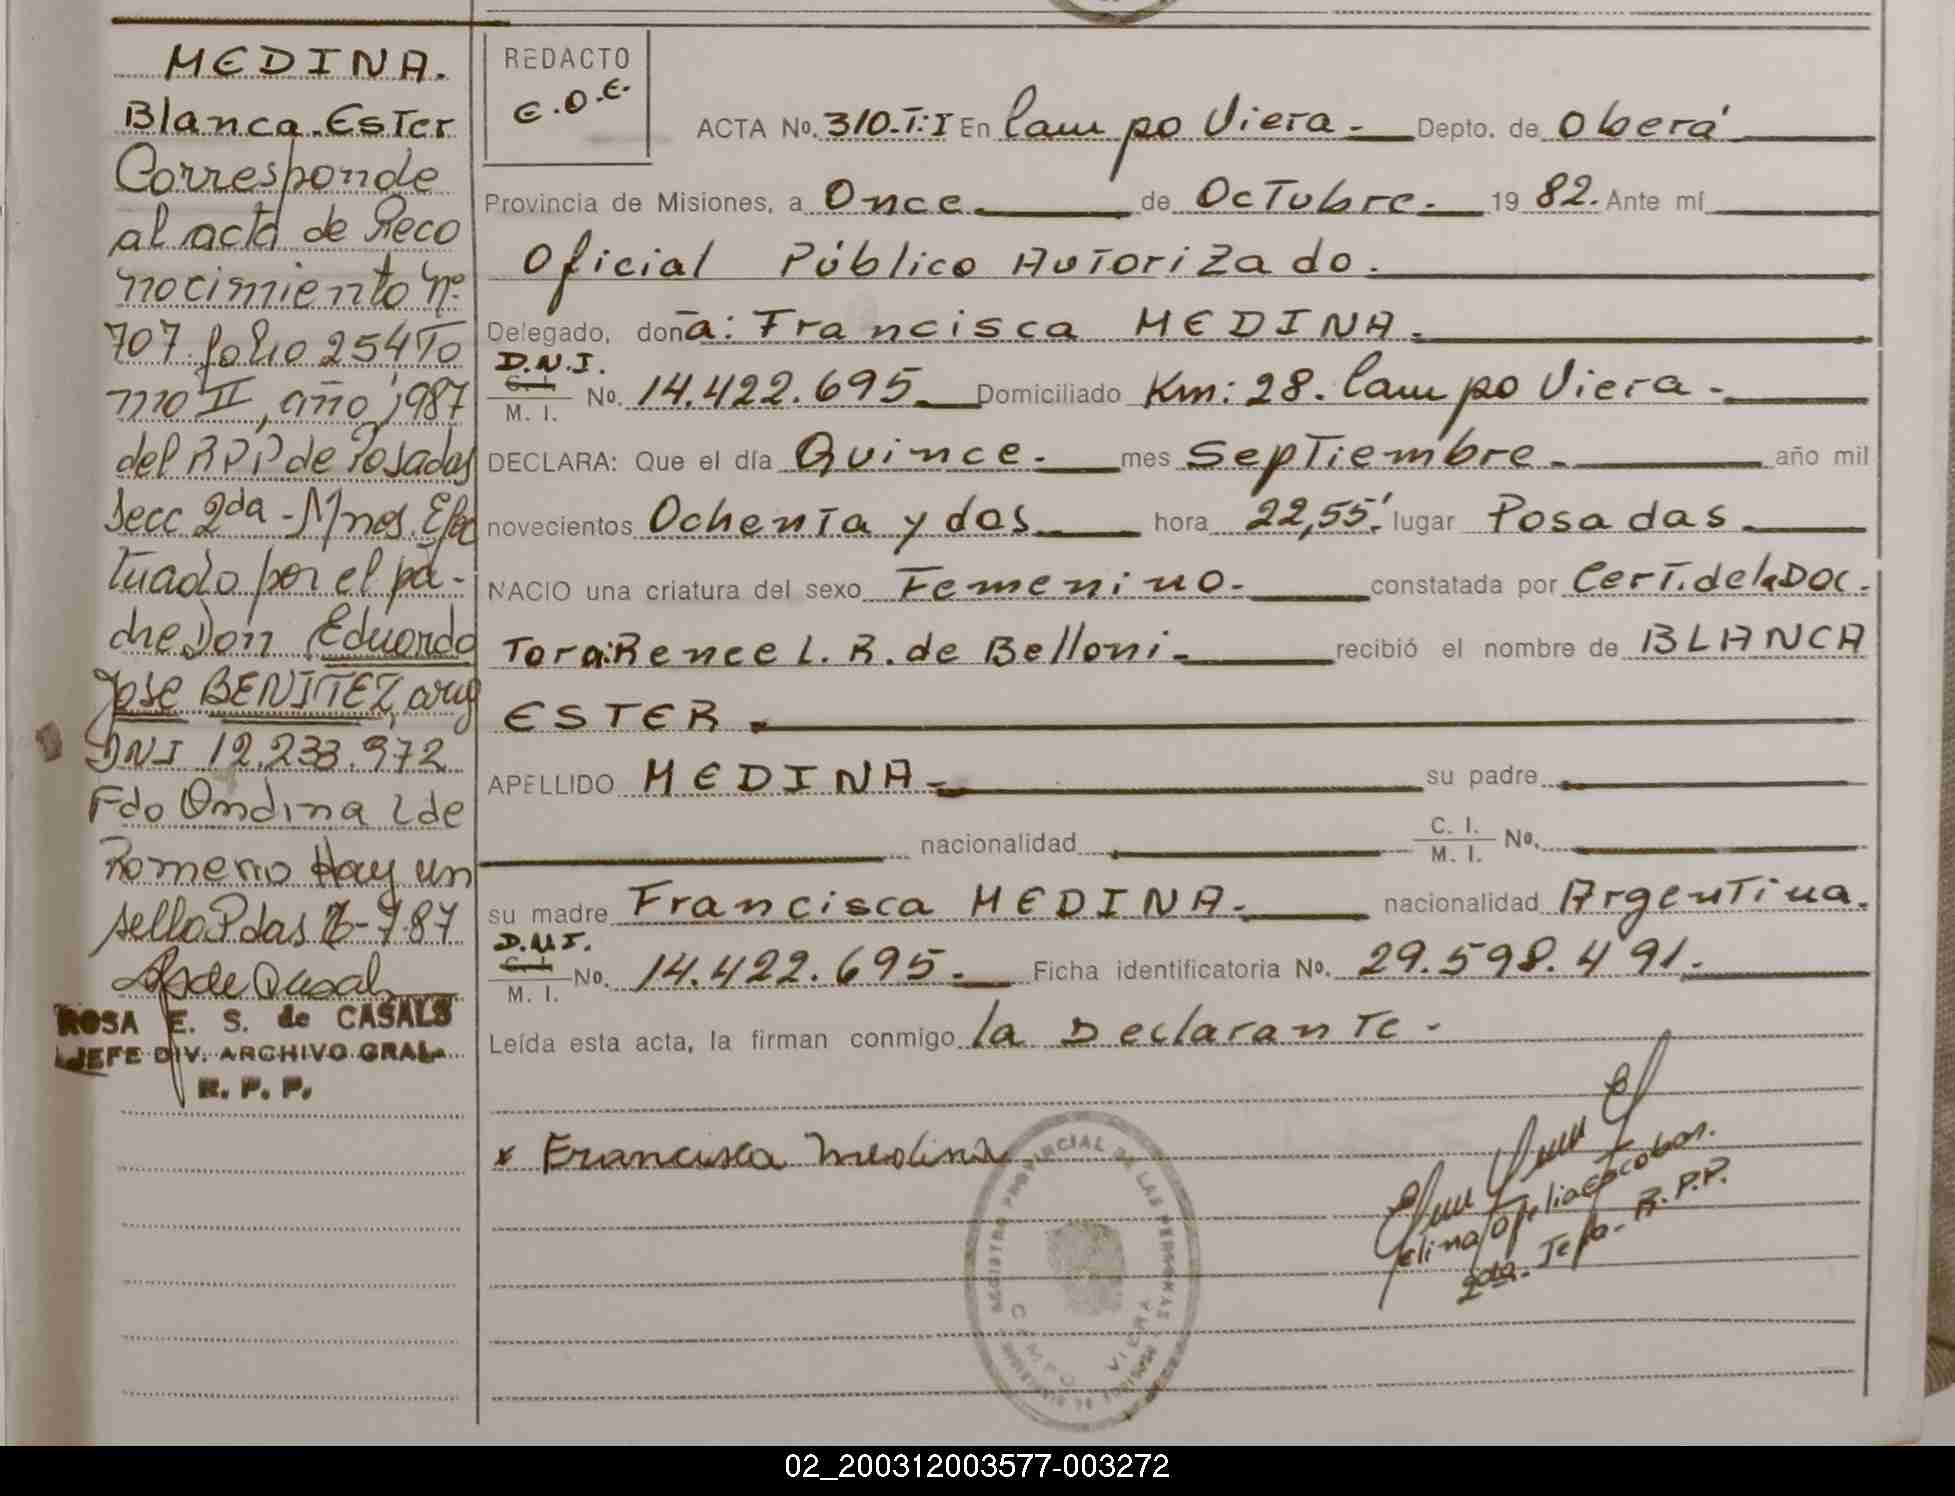 MEDINA.
Blanca Ester
Corresponde
al acta de Reco
nocimiento Nº
707 folio 254 To
mo II, año 1987
del RPP de Posadas
Secc 2da - Mnes. Efec
tuado por el pa-
dre Don Eduardo
Jose BENITEZ, arg
DNI 12.233.972
Fdo Ondina L de
Romero Hay un
sello Pdas 16-7-87
ROSA E. S. de CASALS
JEFE DIV. ARCHIVO GRAL.
R. P. P.
REDACTO
E.O.E.
ACTA No. 310-T:I En Campo Viera - Depto. de Oberá
Provincia de Misiones, a Once de Octubre. 19 82. Ante mí
Oficial Público Autorizado.
Delegado, doña: Francisca MEDINA.
D.N.I.
C. I.
M. I. No. 14.422.695 Domiciliado Km: 28. Campo Viera -
DECLARA: Que el día Quince. mes Septiembre - año mil
novecientos Ochenta y dos hora 22,55' lugar Posadas.
NACIO una criatura del sexo Femenino- constatada por Cert. de la Doc.
Tora: Renee L. R. de Belloni - recibió el nombre de BLANCA
ESTER
APELLIDO MEDINA - su padre
nacionalidad C. I.
M. I. No.
su madre Francisca MEDINA. nacionalidad Argentina.
D.N.I.
C. I.
M. I. No. 14.422.695. Ficha identificatoria No. 29.598.491.
Leída esta acta, la firman conmigo la Declarante -
x Francisca Medina
REGISTRO PROVINCIAL DE LAS PERSONAS
CAMPO VIERA
Celina Ofelia Escobar.
2da. Jefa- R.P.P.
02_200312003577-003272